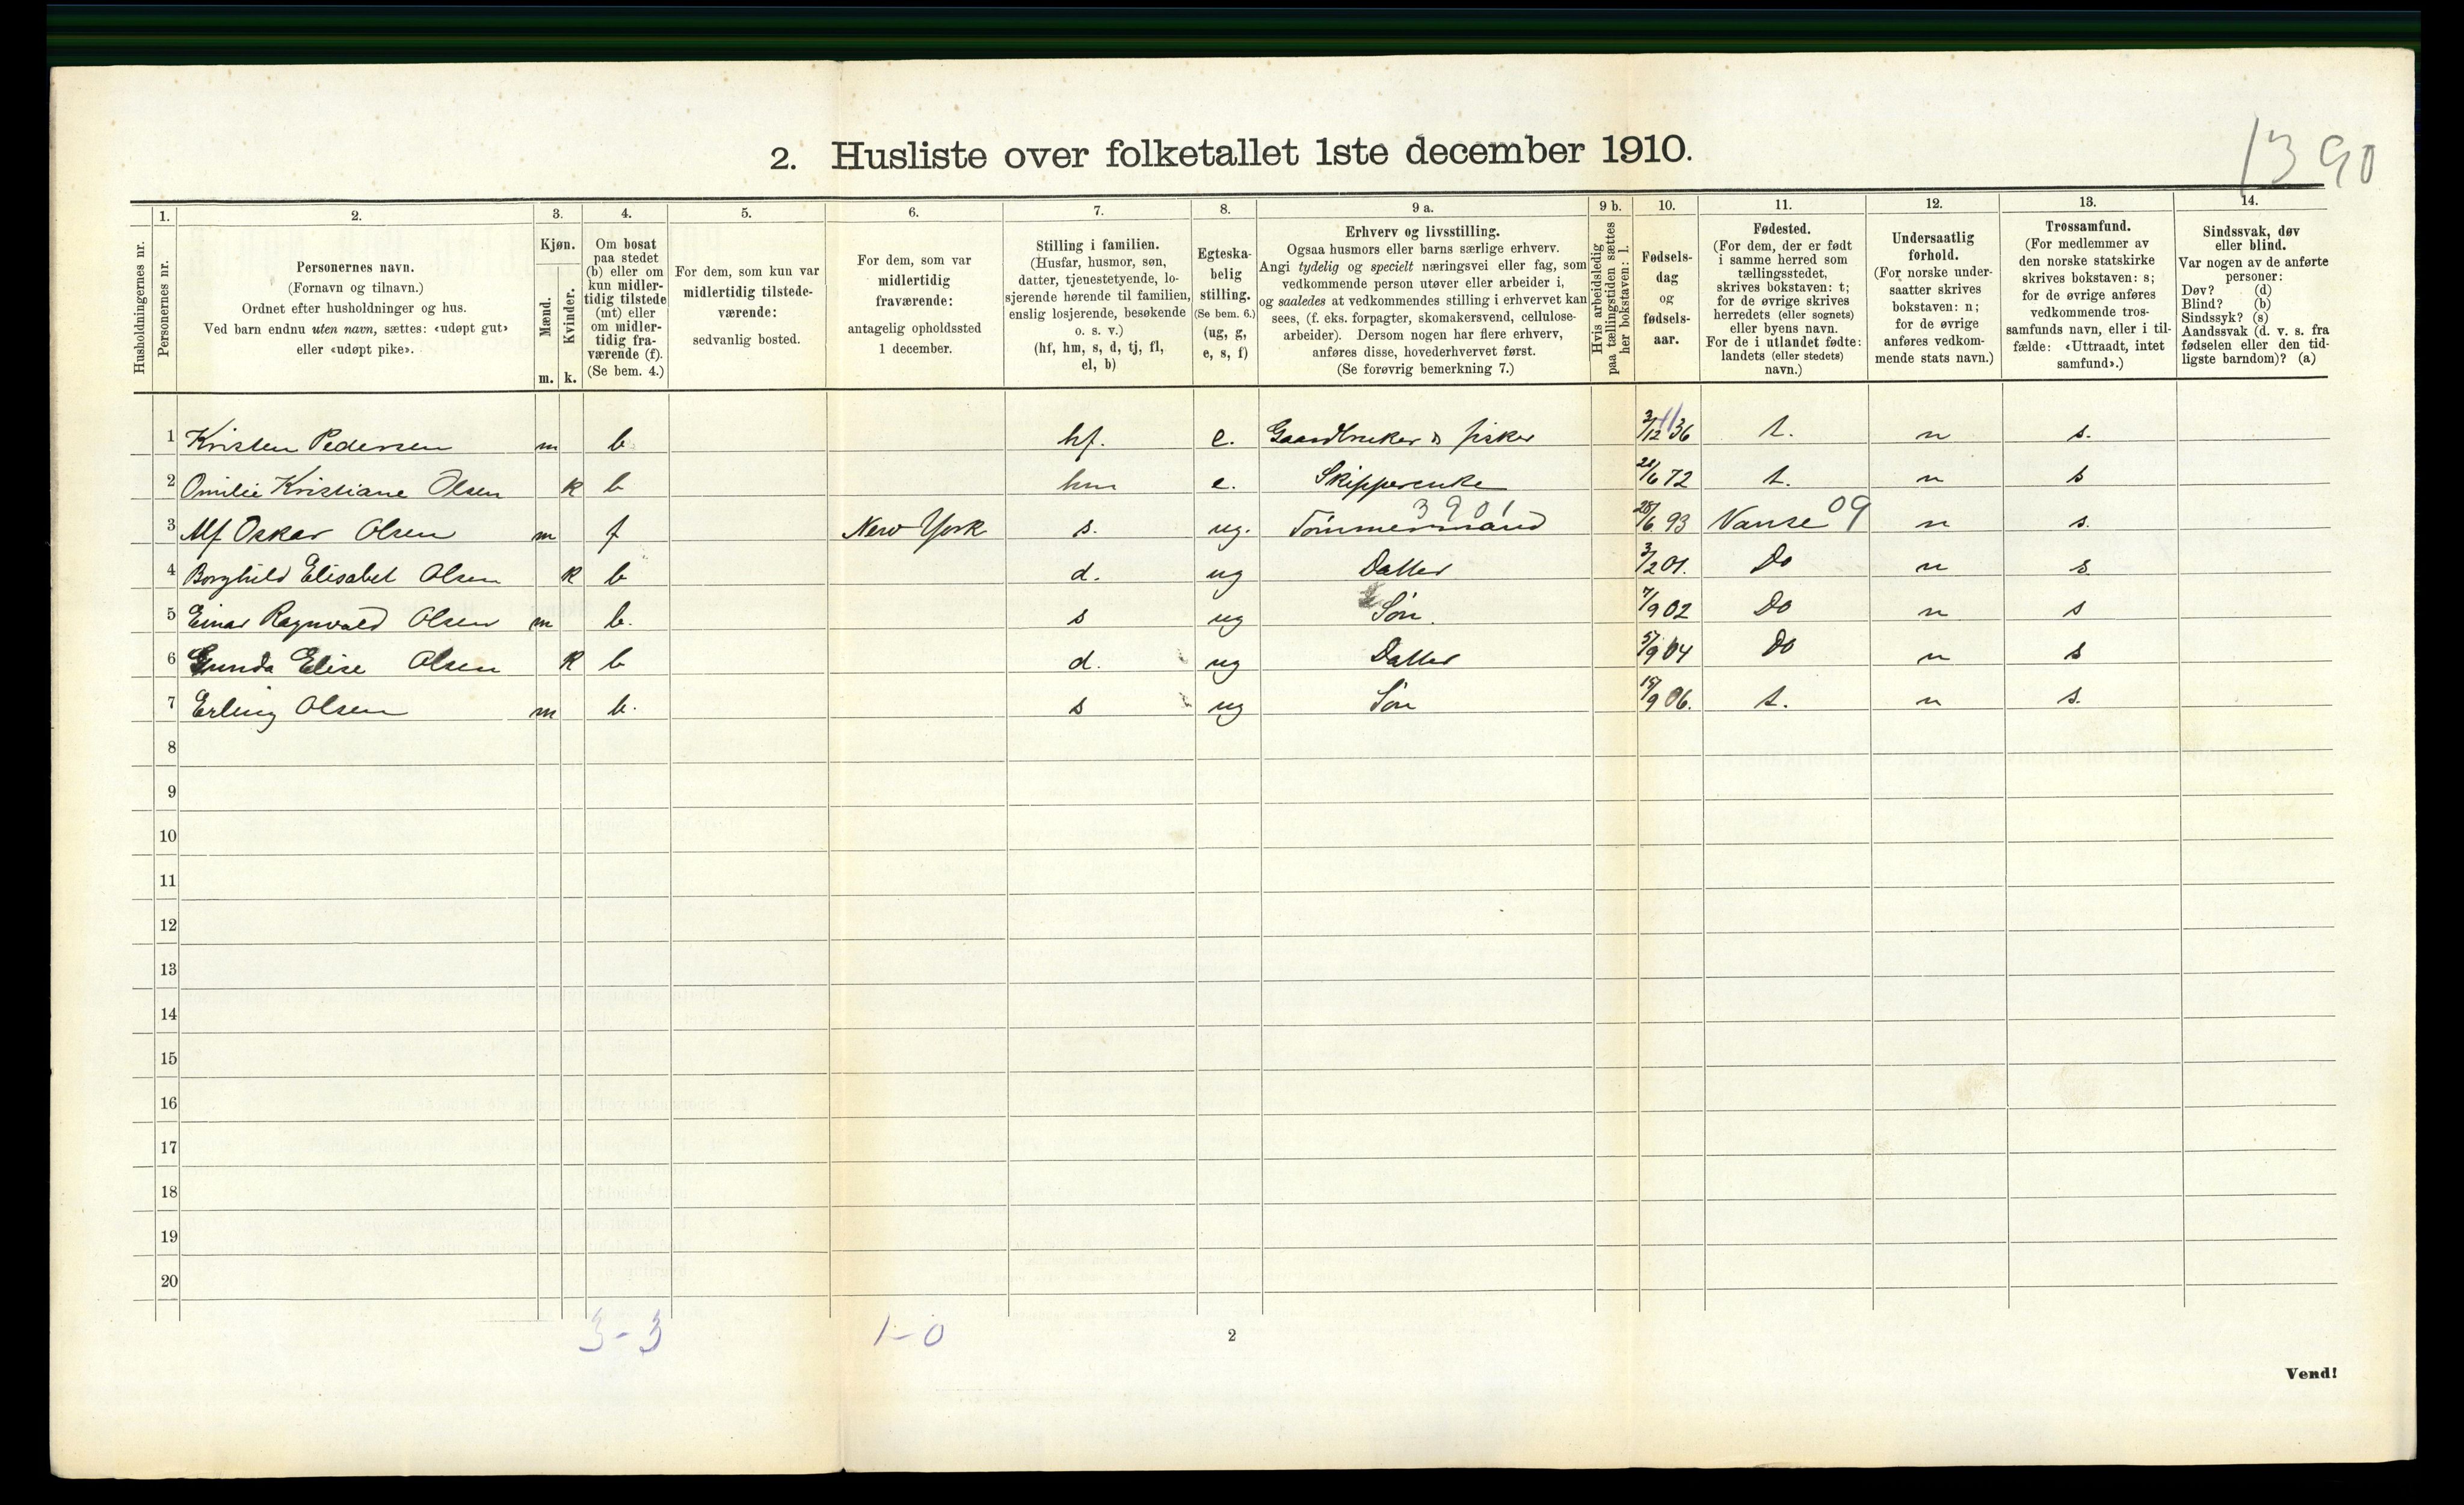 1390
2. Husliste over folketallet 1ste december 1910.
Husholdningernes nr.
1.
Personernes nr.
2.
Personernes navn.
(Fornavn og tilnavn.)
Ordnet efter husholdninger og hus.
Ved barn endnu uten navn, sættes: «udøpt gut»
eller «udøpt pike».
3.
Kjøn.
Mænd.
Kvinder.
m. k.
4.
Om bosat
paa stedet
(b) eller om
kun midler-
tidig tilstede
(mt) eller
om midler-
tidig fra-
værende (f).
(Se bem. 4.)
5.
For dem, som kun var
midlertidig tilstede-
værende:
sedvanlig bosted.
6.
For dem, som var
midlertidig
fraværende:
antagelig opholdssted
1 december.
7.
Stilling i familien.
(Husfar, husmor, søn,
datter, tjenestetyende, lo-
sjerende hørende til familien,
enslig losjerende, besøkende
o. s. v.)
(hf, hm, s, d, tj, fl,
el, b)
8.
Egteska-
belig
stilling.
(Se bem. 6.)
(ug, g,
e, s, f)
9 a.
Erhverv og livsstilling.
Ogsaa husmors eller barns særlige erhverv.
Angi tydelig og specielt næringsvei eller fag, som
vedkommende person utøver eller arbeider i,
og saaledes at vedkommendes stilling i erhvervet kan
sees, (f. eks. forpagter, skomakersvend, cellulose-
arbeider). Dersom nogen har flere erhverv,
anføres disse, hovederhvervet først.
(Se forøvrig bemerkning 7.)
9 b.
Hvis arbeidsledig
paa tællingstiden sættes
her bokstaven: l.
10.
Fødsels-
dag
og
fødsels-
aar.
11.
Fødested.
(For dem, der er født
i samme herred som
tællingsstedet,
skrives bokstaven: t;
for de øvrige skrives
herredets (eller sognets)
eller byens navn.
For de i utlandet fødte:
landets (eller stedets)
navn.)
12.
Undersaatlig
forhold.
(For norske under-
saatter skrives
bokstaven: n;
for de øvrige
anføres vedkom-
mende stats navn.)
13.
Trossamfund.
(For medlemmer av
den norske statskirke
skrives bokstaven: s;
for de øvrige anføres
vedkommende tros-
samfunds navn, eller i til-
fælde: «Uttraadt, intet
samfund».)
14.
Sindssvak, døv
eller blind.
Var nogen av de anførte
personer:
Døv? (d)
Blind? (b)
Sindssyk? (s)
Aandssvak (d. v. s. fra
fødselen eller den tid-
ligste barndom)? (a)
1 Kristen Pedersen m b hf. e. Gaardbruker & fisker 3/12 36 t. n s.
2 Omilie Kristiane Olsen k b hm e. Skipperenke 21/6 72 t. n s
3 Alf Oskar Olsen m f New York s. ug. Tømmermand 3901 28/6 93 Vanse 09 n s.
4 Borghild Elisabet Olsen k b d. ug Datter 3/2 01. Do n s
5 Einar Ragnvald Olsen m b. s ug Søn. 7/9 02 Do n s
6 Gunda Elise Olsen k b d. ug Datter 5/9 04 Do n s
7 Erling Olsen m b. s ug Søn 15/9 06. t. n s.
8
9
10
11
12
13
14
15
16
17
18
19
20
3-3 1-0
2
Vend!